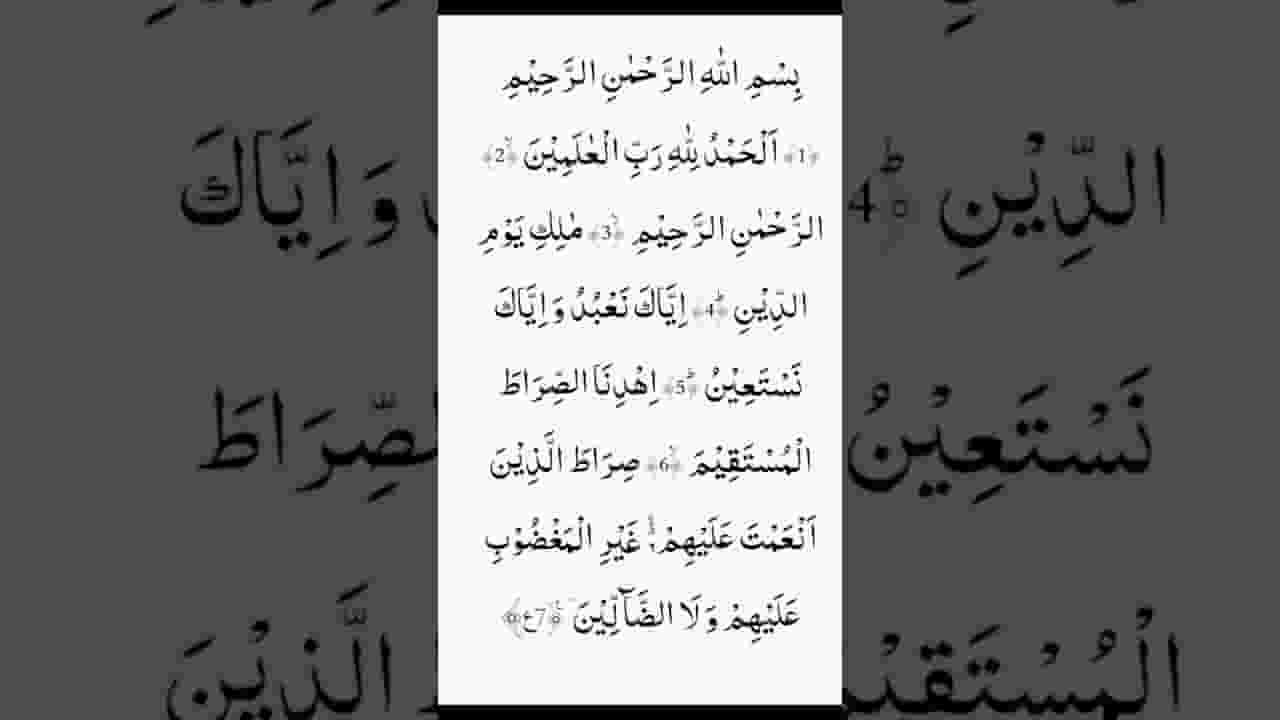 بِسْمِ اللّٰهِ الرَّحْمٰنِ الرَّحِيْمِ
﴿1﴾ اَلْحَمْدُ لِلّٰهِ رَبِّ الْعٰلَمِيْنَ ۙ﴿2﴾
الرَّحْمٰنِ الرَّحِيْمِ ۙ﴿3﴾ مٰلِكِ يَوْمِ
الدِّيْنِ ؕ﴿4﴾ اِيَّاكَ نَعْبُدُ وَ اِيَّاكَ
نَسْتَعِيْنُ ؕ﴿5﴾ اِهْدِنَا الصِّرَاطَ
الْمُسْتَقِيْمَ ۙ﴿6﴾ صِرَاطَ الَّذِيْنَ
اَنْعَمْتَ عَلَيْهِمْ ۙ۬ غَيْرِ الْمَغْضُوْبِ
عَلَيْهِمْ وَ لَا الضَّآلِّيْنَ ﴿7ع﴾